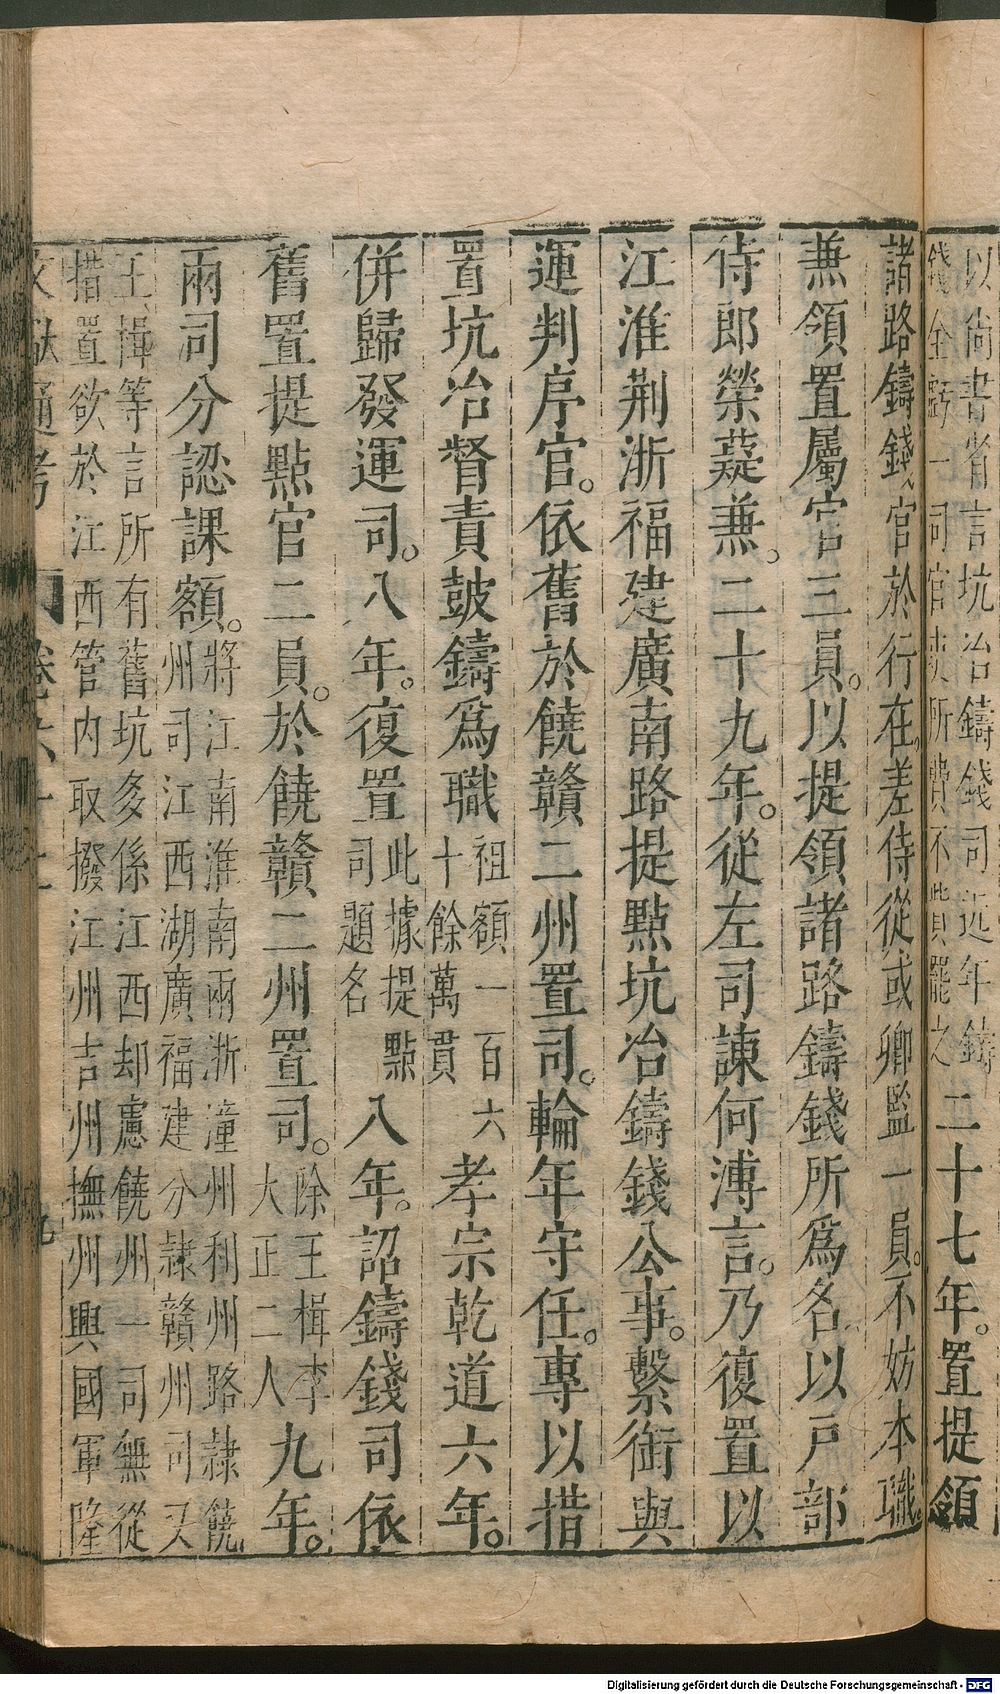 以尚書省言坑冶鑄錢司近年鑄
錢全虧一司官吏所費不貲罷之
二十七年。置提領
諸路鑄錢官於行在。差侍從或卿監一員。不妨本職。
兼領置屬官三員。以提領諸路鑄錢所爲名以戸部
侍郎榮薿兼。二十九年。從左司諫何溥言。乃復置以
江淮荆浙福建廣南路提點坑冶鑄錢公事。繫銜與
運判序官。依舊於饒贛二州置司。輪年守任。專以措
置坑冶督責鼓鑄爲職
祖額一百六
十餘萬貫
孝宗乾道六年。
併歸發運司。八年。復置
此據提點
司題名
八年。詔鑄錢司依
舊置提點官二員。於饒贛二州置司。
除王楫李
大正二人
九年。
兩司分認課額。
將江南淮南兩浙潼州利州路隷饒
州司江西湖廣福建分隷贛州司又
王楫等言所有舊坑多係江西却慮饒州一司無從
措置欲於江西管内取撥江州吉州撫州興國軍隆
文獻通考
卷六十二
九
Digitalisierung gefördert durch die Deutsche Forschungsgemeinschaft - DFG